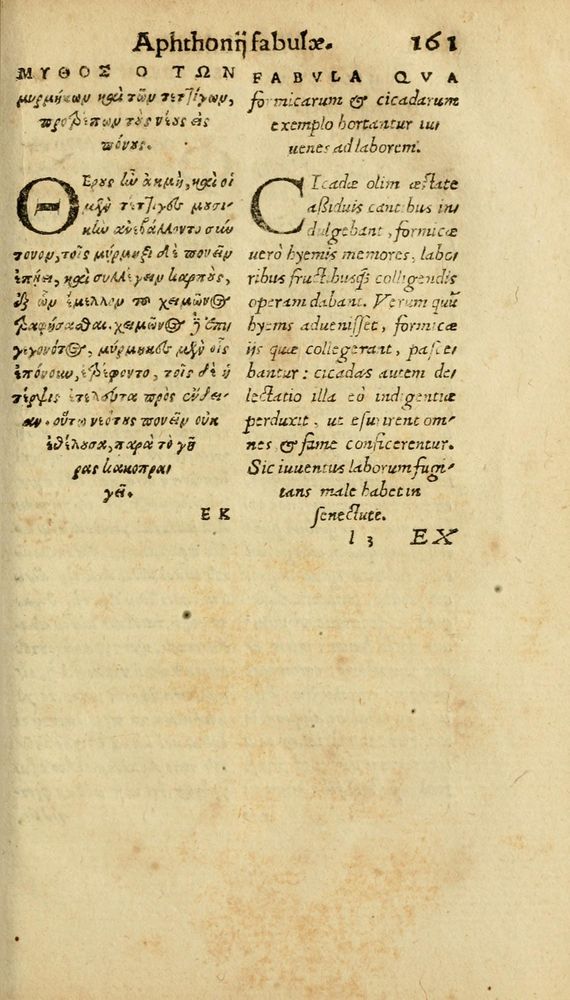 Aphthonij fabulæ. 161
ΜΥΘΟΣ Ο ΤΩΝ
μυρμήκων καὶ τῶν τετίγων,
προτρέπων τοὺς νέους εἰς
πόνους.
ΘΕρους ἦν ἀκμὴ, καὶ οἱ
μὲν τέτιγες μουσι-
κὴν ἀνεβάλλοντο σύν
τονον, τοῖς μύρμηξι δὲ πονεῖν
ἐπῄει, καὶ συλλέγειν καρποὺς,
ἐξ ὧν ἔμελλον τοῦ χειμῶνος
τραφήσεσθαι. χειμῶνος δὲ ἐπι
γεγονότος, μύρμηκες μὲν οἷς
ἐπόνουν, ἐτρέφοντο, τοῖς δὲ ἡ
τέρψις ἐτελεύτα πρὸς ἔνδει-
αν. οὕτω νεότης πονεῖν οὐκ
ἐθέλουσα, παρὰ τὸ γῆ
ρας κακοπρα-
γεῖ.
ΕΚ
FABVLA QVA
formicarum & cicadarum
exemplo hortantur iu-
uenes ad laborem.
CIcadæ olim æstate
aßiduis cantibus in-
dulgebant, formicæ
uerò hyemis memores, labo-
ribus fructibusq́; colligendis
operam dabant. Verum quũ
hyems aduenisset, formicæ
ijs quæ collegerant, pasce-
bantur: cicadas autem de-
lectatio illa eò indigentiæ
perduxit, ut esurirent om-
nes & fame conficerentur.
Sic iuuentus laborum fugi-
tans male habet in
senectute.
l 3 EX